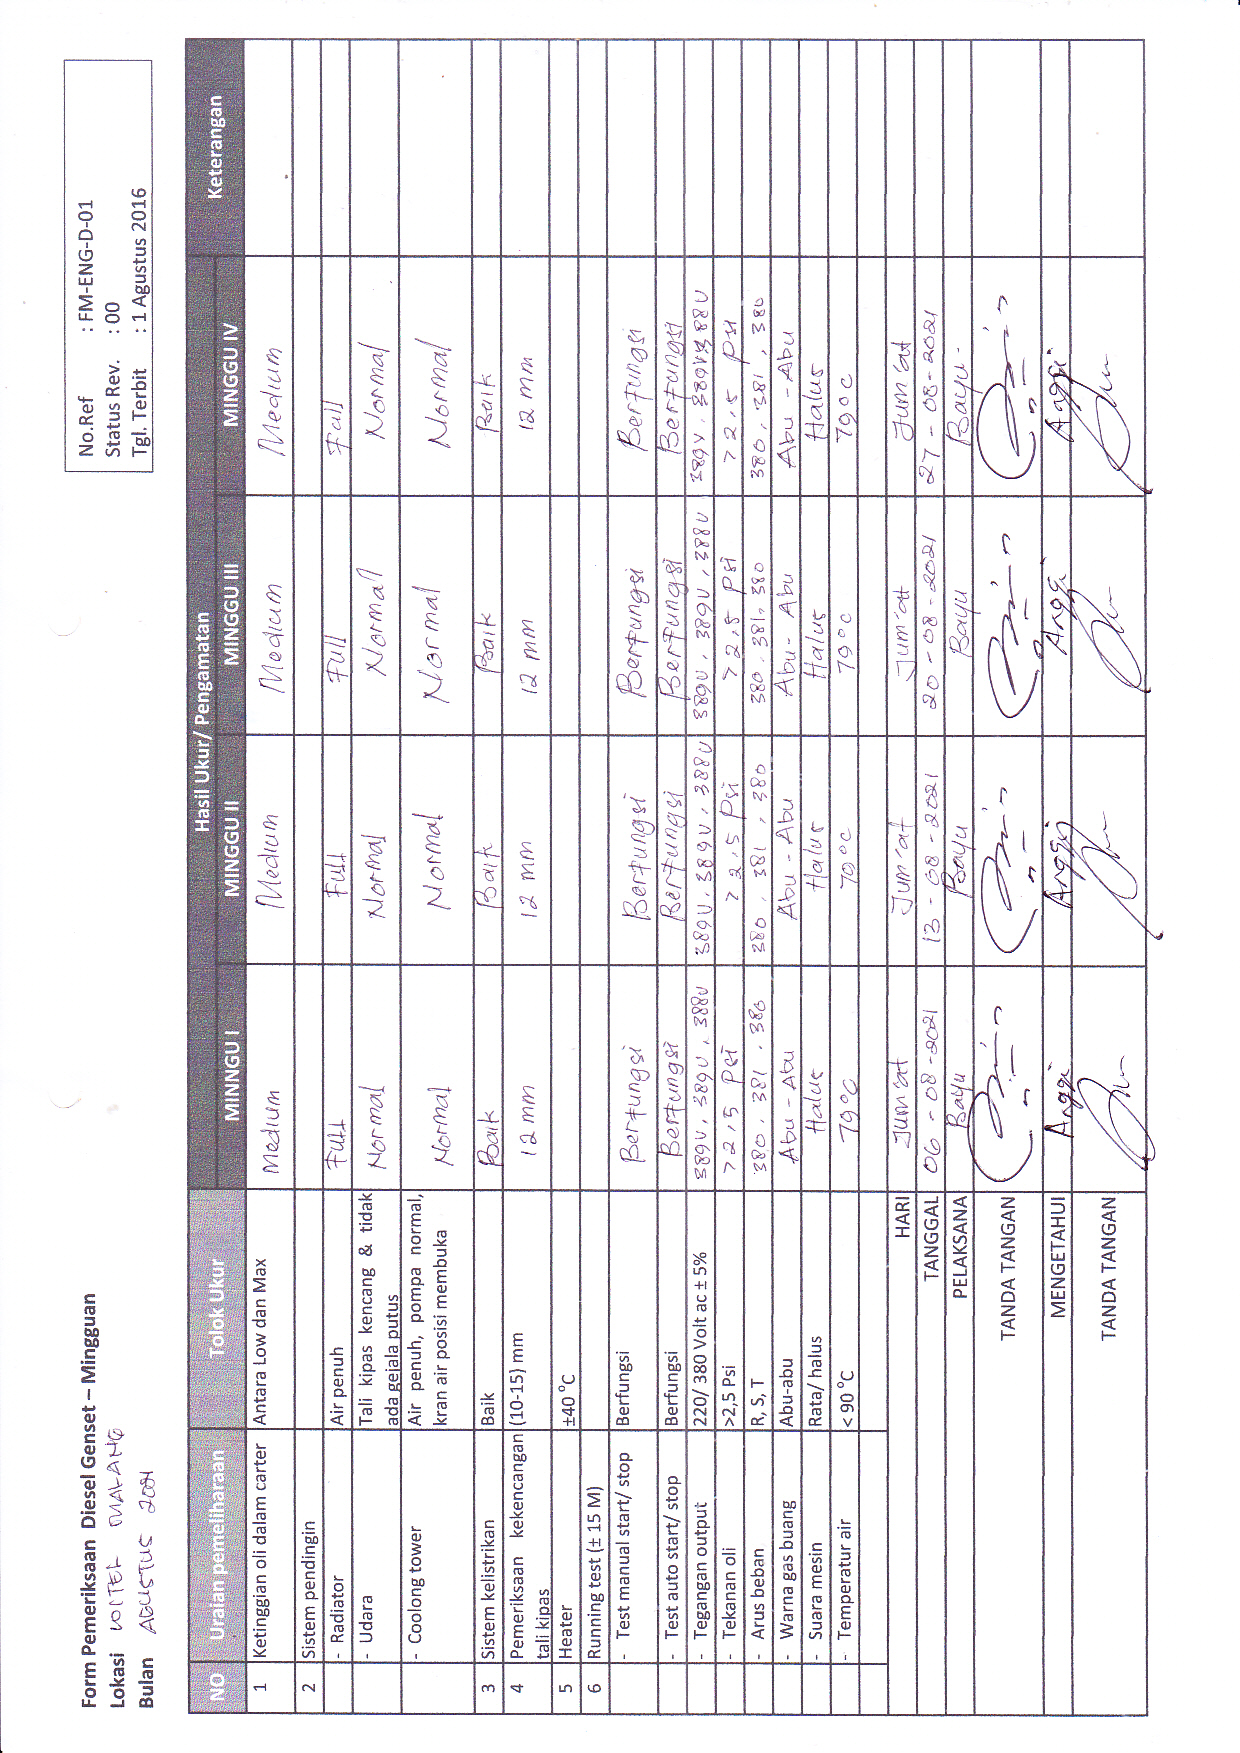 Form Pemeriksaan Diesel Genset – Mingguan
Lokasi MALANG
Bulan AGUSTUS 2021
No.Ref : FM-ENG-D-01
Status Rev. : 00
Tgl. Terbit : 1 Agustus 2016
NO Uraian pemeliharaan Tolok Ukur Hasil Ukur/ Pengamatan Keterangan
MINNGU I MINGGU II MINGGU III MINGGU IV
1 Ketinggian oli dalam carter Antara Low dan Max Medium Medium Medium Medium
2 Sistem pendingin
- Radiator Air penuh Full Full Full Full
- Udara Tali kipas kencang & tidak ada gejala putus Normal Normal Normal Normal
- Coolong tower Air penuh, pompa normal, kran air posisi membuka Normal Normal Normal Normal
3 Sistem kelistrikan Baik Baik Baik Baik Baik
4 Pemeriksaan kekencangan tali kipas (10-15) mm 12 mm 12 mm 12 mm 12 mm
5 Heater ±40 °C
6 Running test (± 15 M)
- Test manual start/ stop Berfungsi Berfungsi Berfungsi Berfungsi Berfungsi
- Test auto start/ stop Berfungsi Berfungsi Berfungsi Berfungsi Berfungsi
- Tegangan output 220/ 380 Volt ac ± 5% 389V, 389V, 388V 389V, 389V, 388V 389V, 389V, 388V 389V, 389V, 388V
- Tekanan oli >2,5 Psi >2,5 Psi >2,5 Psi >2,5 Psi >2,5 Psi
- Arus beban R, S, T 380, 381, 380 380, 381, 380 380, 381, 380 380, 381, 380
- Warna gas buang Abu-abu Abu - Abu Abu - Abu Abu - Abu Abu - Abu
- Suara mesin Rata/ halus Halus Halus Halus Halus
- Temperatur air < 90 °C 79°C 79°C 79°C 79°C
HARI Jum'at Jum'at Jum'at Jum'at
TANGGAL 06 - 08 - 2021 13 - 08 - 2021 20 - 08 - 2021 27 - 08 - 2021
PELAKSANA Bayu Bayu Bayu Bayu
TANDA TANGAN
MENGETAHUI Anggi Anggi Anggi Anggi
TANDA TANGAN